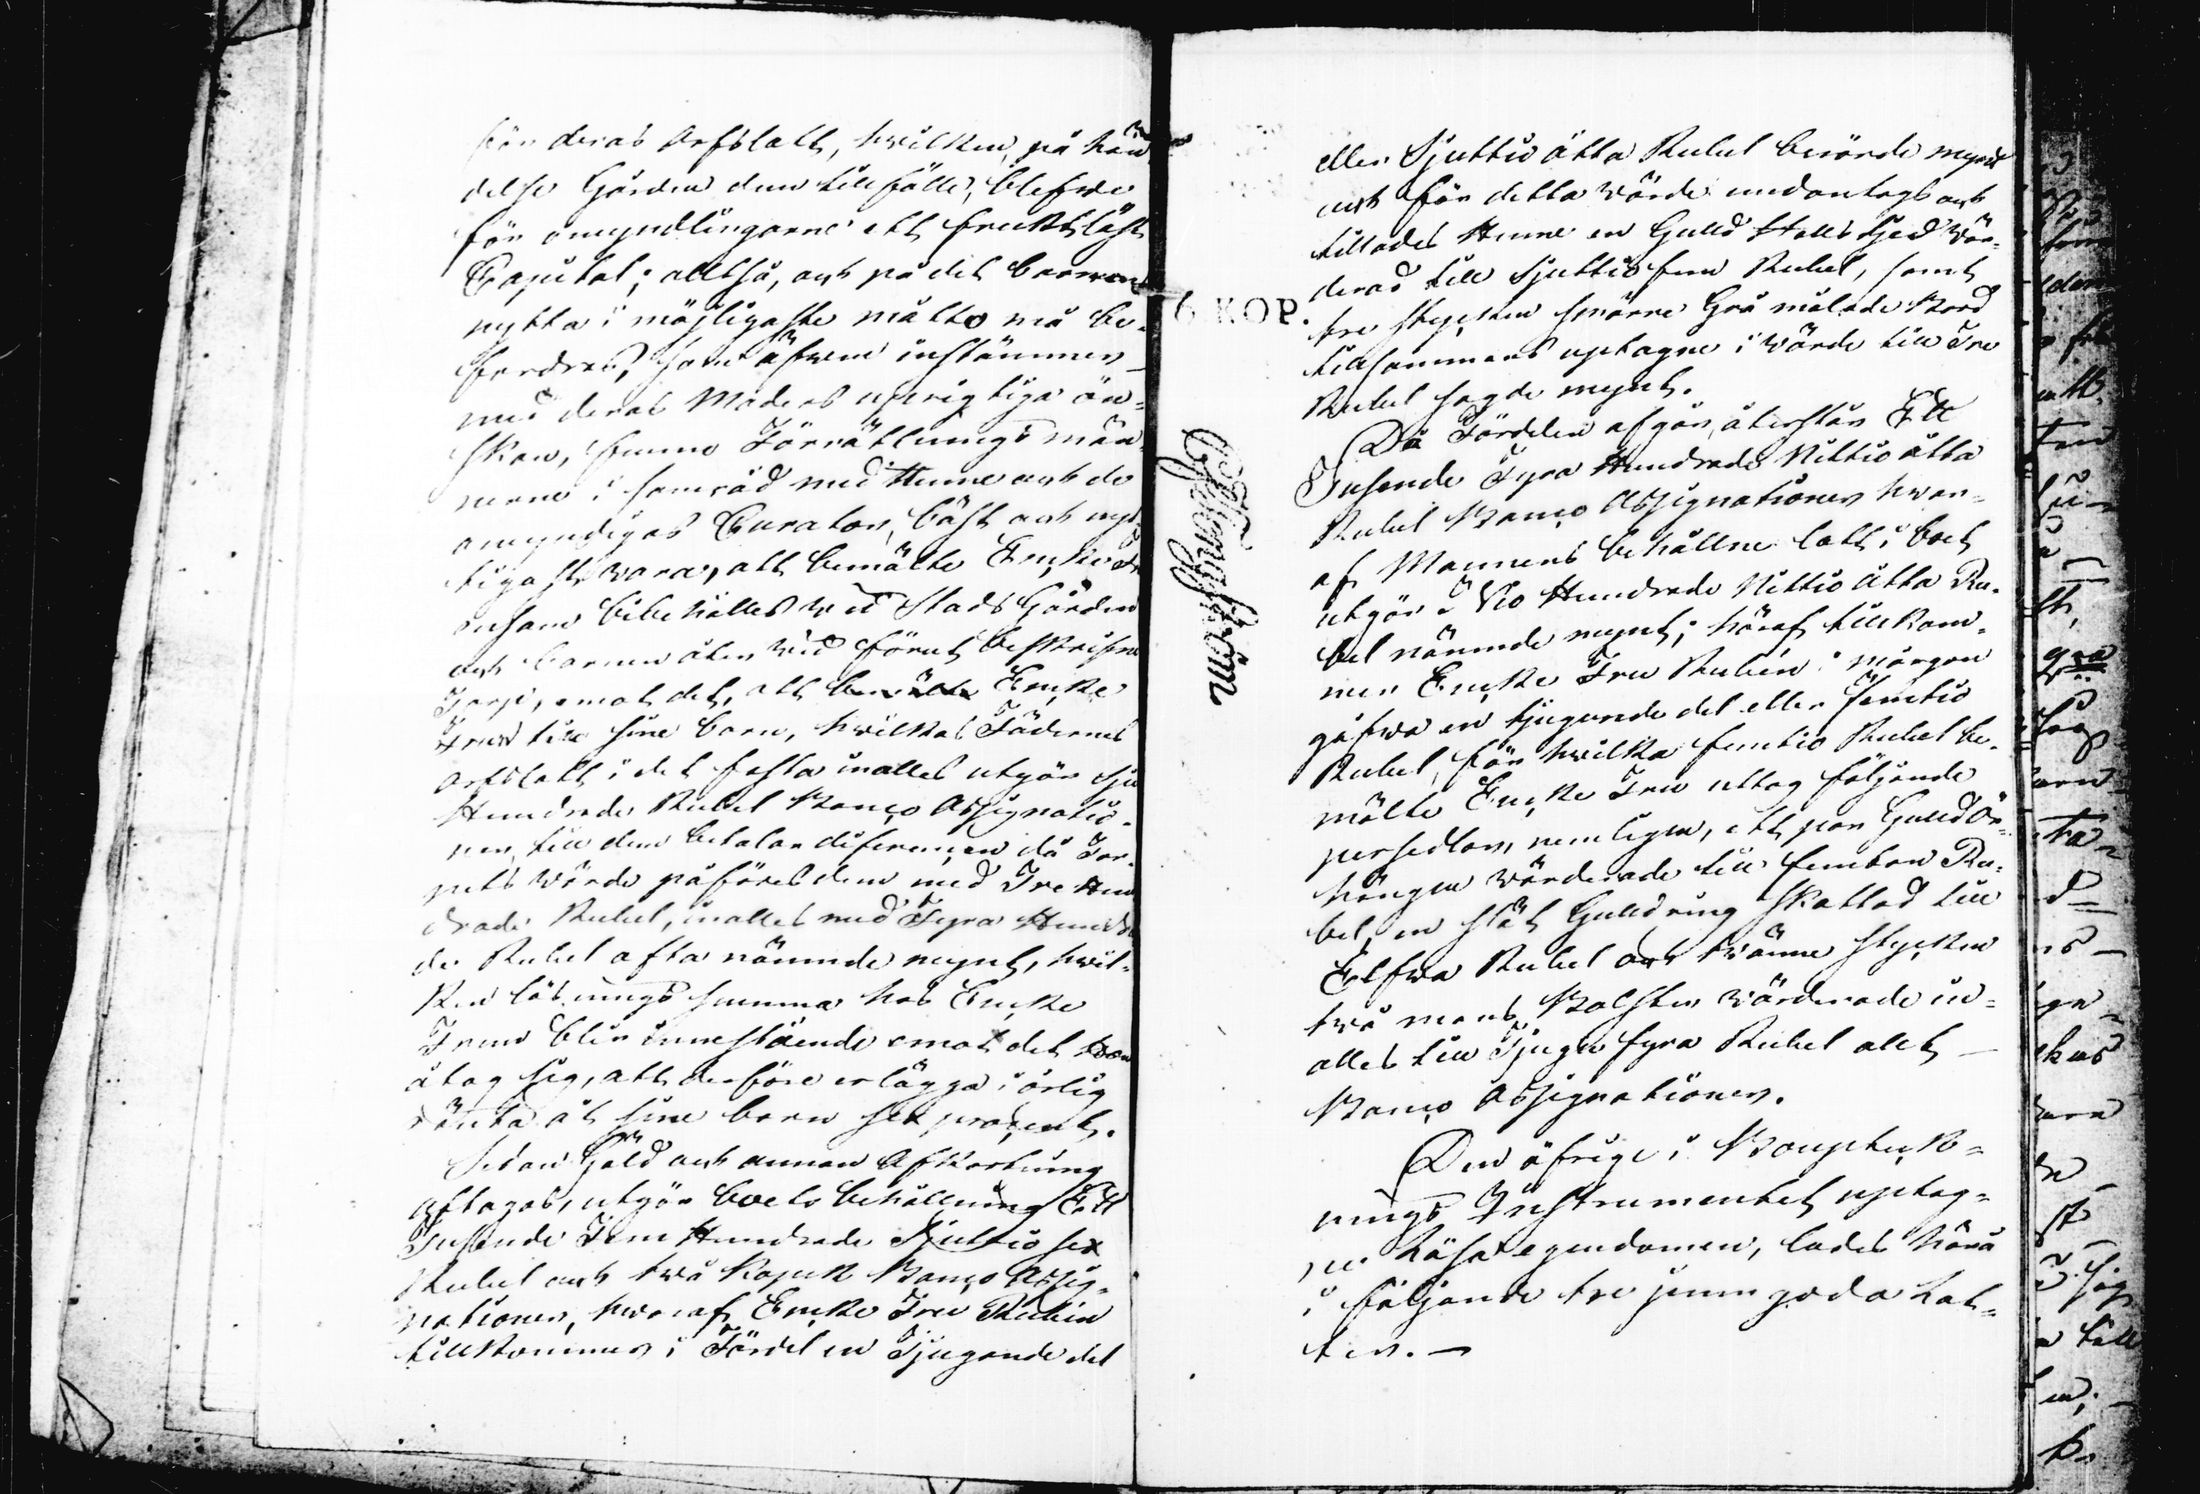 för deras Arfslatt, hvilken, på hän
delse Gården dem tillfölle, blefwe
för omyndlingarne ett fruktlöst
Capital; alltså, och på det barnens
nytta i möjligaste måtto må be-
fordras, som äfwen instämmer
med deras Moders upriktiga ön-
skan, funno Förrättningsmän
nerne i samråd med Henne och de
omyndigas Curator, bäst och nyt-
tigast vara, att bemälte Enke Fr
ensam bibehålles wid StadsGården
och barnen åter wid förut beskrifne
Torp, emot det, att bemälte Enke
Fru till sine barn, hwilkas Fädernes
Arfslatt i det fasta i alles utgör sju
Hundrade Rubel Banco Assignatio-
ner, till dem betalar differencen då Tor-
pets wärde påföres dem med Tre Hun
drade Rubel, i alles med Fyra Hundra
de Rubel ofta nämnde mynt, hwil-
ken lösningssumma hos Enke
Frun blir innestående emot det hon
åtog sig, att derföre erlägga i årlig
ränta åt sine barn sex procent.
Sedan Gäld och annan Afkortning
aftagas, utgör boets behållning Ett
Tusende Fem Hundrade Sjuttio sex
Rubel och twå Kopek Banco Assig-
nationer, hwaraf Enke Fru Rubin
tillkommer i Fördel en Tjugonde del
6 KOP.
eller Sjuttio åtta Rubel berörde mynt
och för detta wärde undantogs och
tillades Henne en Guld Halskjed wär-
derad till Sjuttiofem Rubel, samt
tre stycken smärre Grå målade Bord
tillsammans uptagne i wärde till Tre
Rubel sagde mynt.
Då Fördelen afgår, återstår Ett
Tusende Fyra Hundrade Nittio åtta
Rubel Banco Assignationer hwar-
af Mannens behållne lott i boet
utgör Nio Hundrade Nittio åtta Ru-
bel nämnde mynt; häraf tillkom-
mer Enke Fru Rubin i morgon
gåfwa en tjugonde del eller femtio
Rubel, för hwilka femtio Rubel be-
mälte Enke Fru uttog följande
persedlar, nemligen, ett par GuldÖr-
hängen wärderade till femton Ru-
bel, en slät Guldring skattad till
Elfwa Rubel och twänne stycken
twå mans Bolster wärderade i
alles till Tjugu fyra Rubel allt
Banco Assignationer.
Den öfrige i Bouptek-
nings Instrumentet uptag-
ne Lösa egendomen, lades härå
i följande tre jemn goda Lot-
ter. —